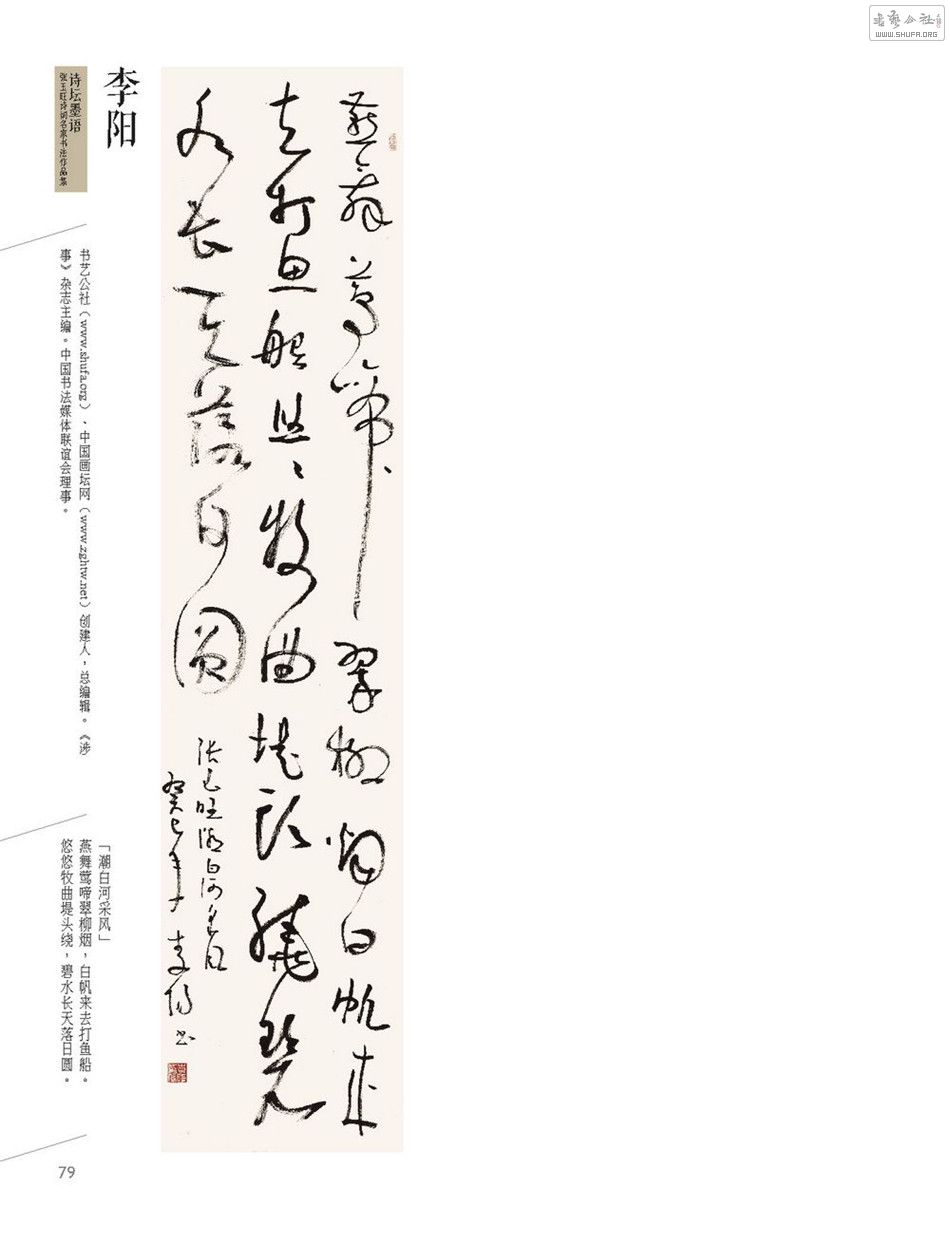 书艺公社
WWW.SHUFA.ORG
李阳
诗坛墨语
张玉旺诗词名家书法作品集
燕舞莺啼翠柳烟白帆来
去打鱼船悠悠牧曲堤头绕碧
水长天落日圆
张玉旺潮白河采风
癸巳年 李阳书
书艺公社(www.shufa.org)、中国画坛网(www.zghtw.net)创建人,总编辑。《涉
事》杂志主编。中国书法媒体联谊会理事。
「潮白河采风」
燕舞莺啼翠柳烟,白帆来去打鱼船。
悠悠牧曲堤头绕,碧水长天落日圆。
79